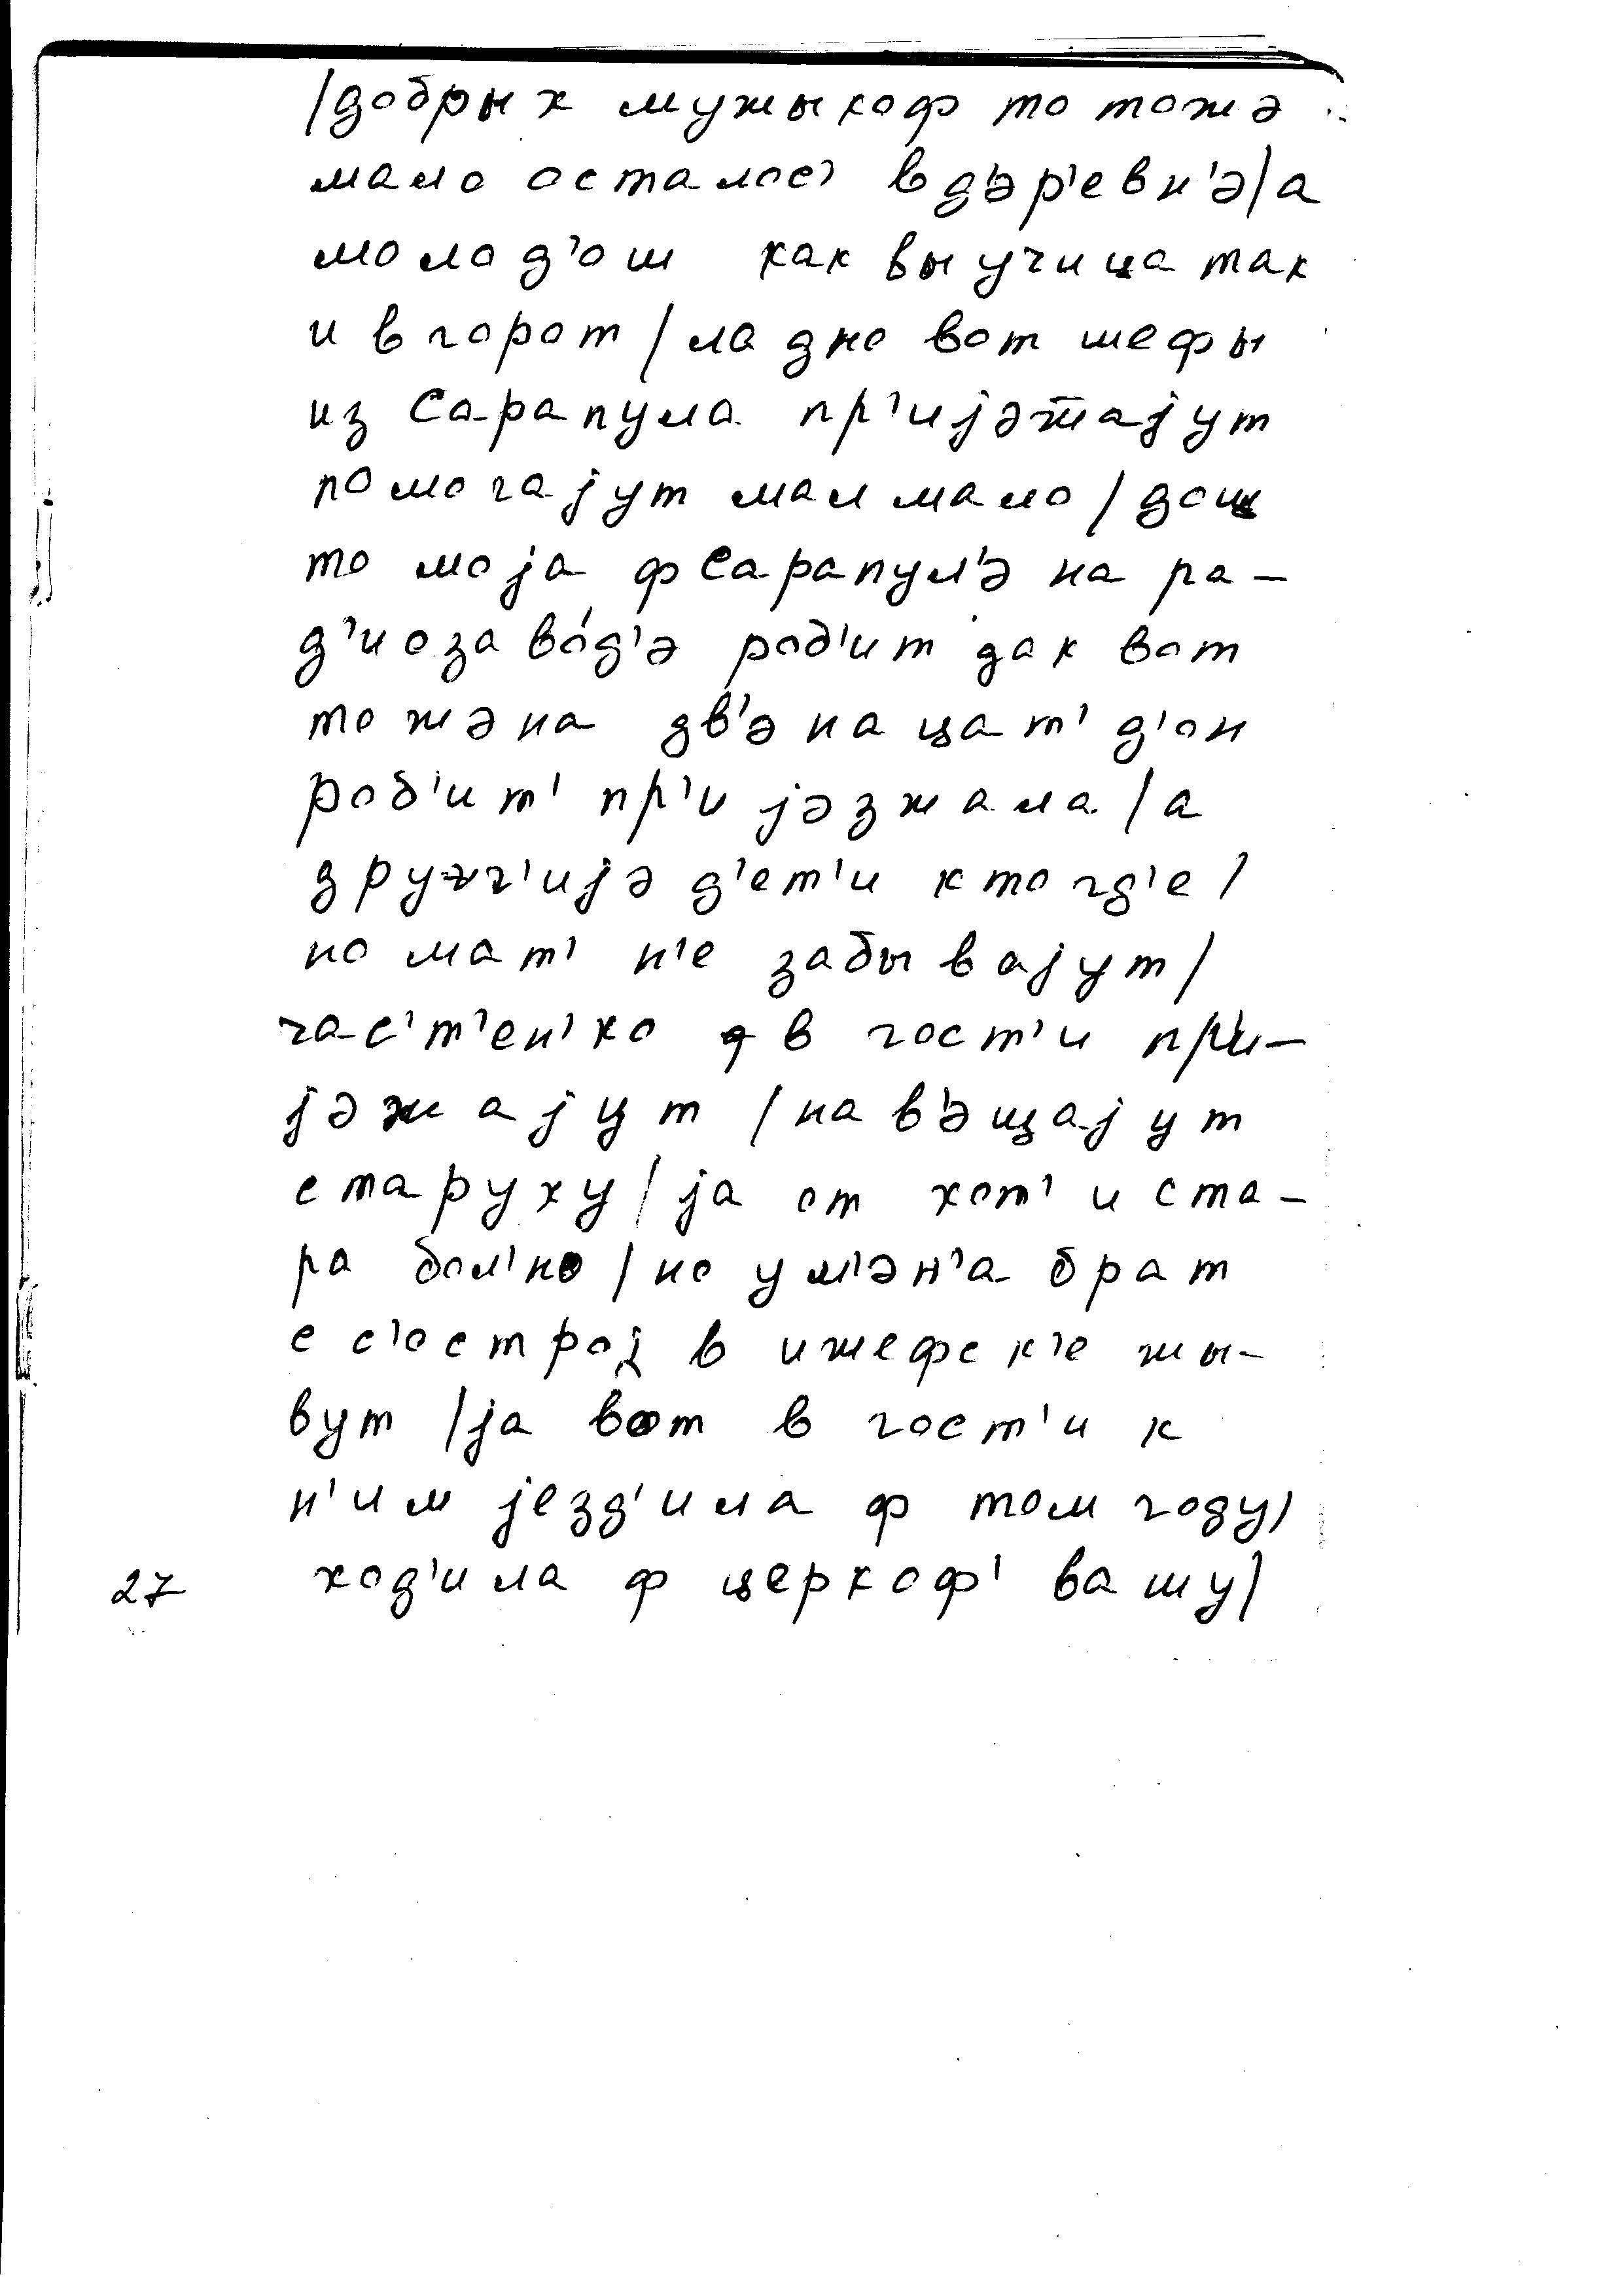 /добрых мужыкоф то тожə
мало осталос' в д'əр'евн'ə/а
молод'ош как выучица так
и в горот/ладно вот шефы
из Сарапула пр'ијəжајут
помогајут мал мало/дощ
то моја ф Сарапул'ə на ра-
д'иозаво́д'ə роб'ит дак вот
тожə на дв'əнацат' д'он
роб'ит' пр'ијəзжала/а
друг'ијə д'ет'и кто гд'е/
но мат' н'е забывајут/
час'т'ен'ко в гост'и пр'и-
јəжајут/нав'əщајут
старуху/ја от хот' и ста-
ра бол'но/но у м'əн'а брат
с с'остројَ в ижефск'е жы-
вут/ја вот в гост'и к
н'им језд'ила ф том году/
27 ход'ила ф церкоф' вашу/